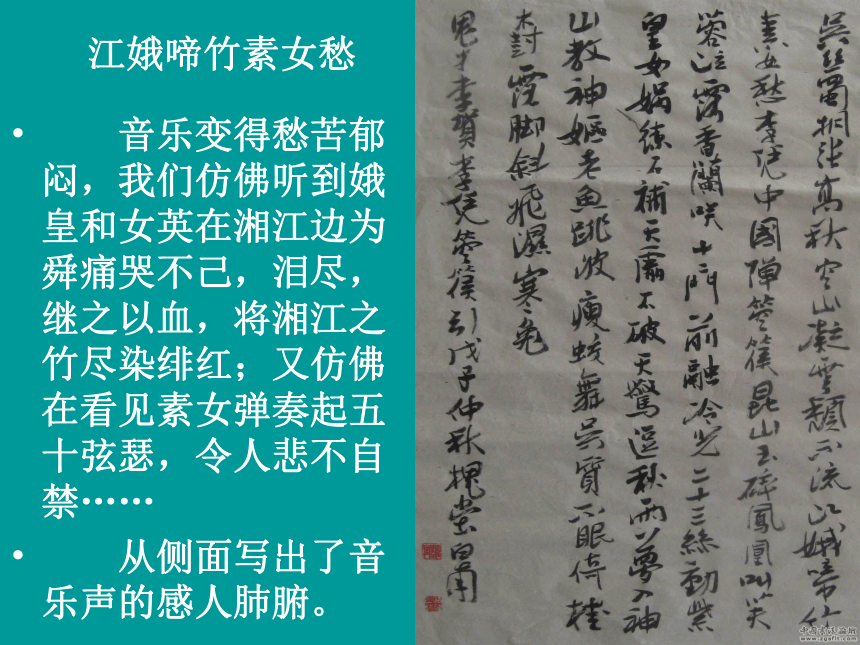 江娥啼竹素女愁
• 音乐变得愁苦郁
闷，我们仿佛听到娥
皇和女英在湘江边为
舜痛哭不己，泪尽，
继之以血，将湘江之
竹尽染绯红；又仿佛
在看见素女弹奏起五
十弦瑟，令人悲不自
禁……
• 从侧面写出了音
乐声的感人肺腑。
吳絲蜀桐张高秋空山凝雲頹不流江娥啼竹
素女愁李凭中國彈箜篌昆山玉碎鳳凰叫芙
蓉泣露香蘭咲十二門前融冷光二十三絲動紫
皇女媧鍊石補天處石破天驚逗秋雨夢入神
山教神嫗老魚跳波瘦蛟舞吳質不眠倚桂
樹露脚斜飛濕寒兔
鬼才李賀李凭箜篌引戊子仲秋